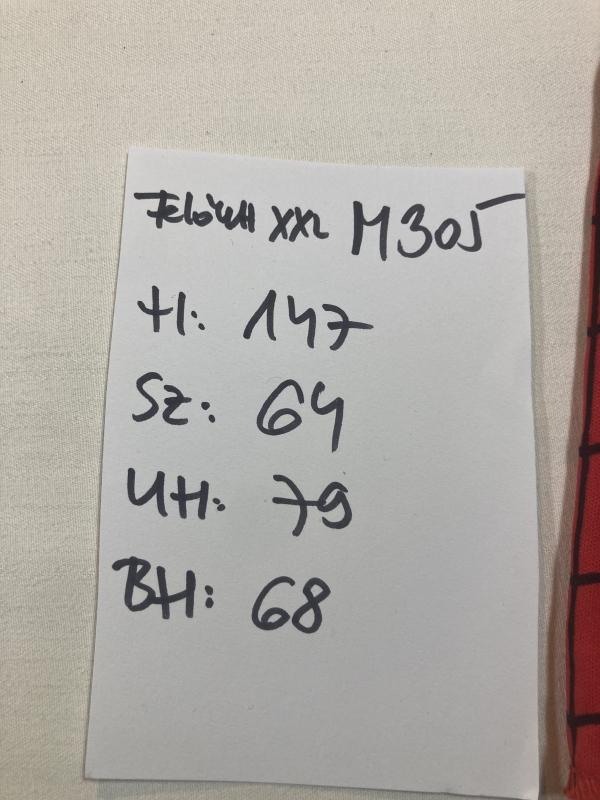 Felnőtt XXL M305
H: 147
SZ: 64
UH: 79
BH: 68